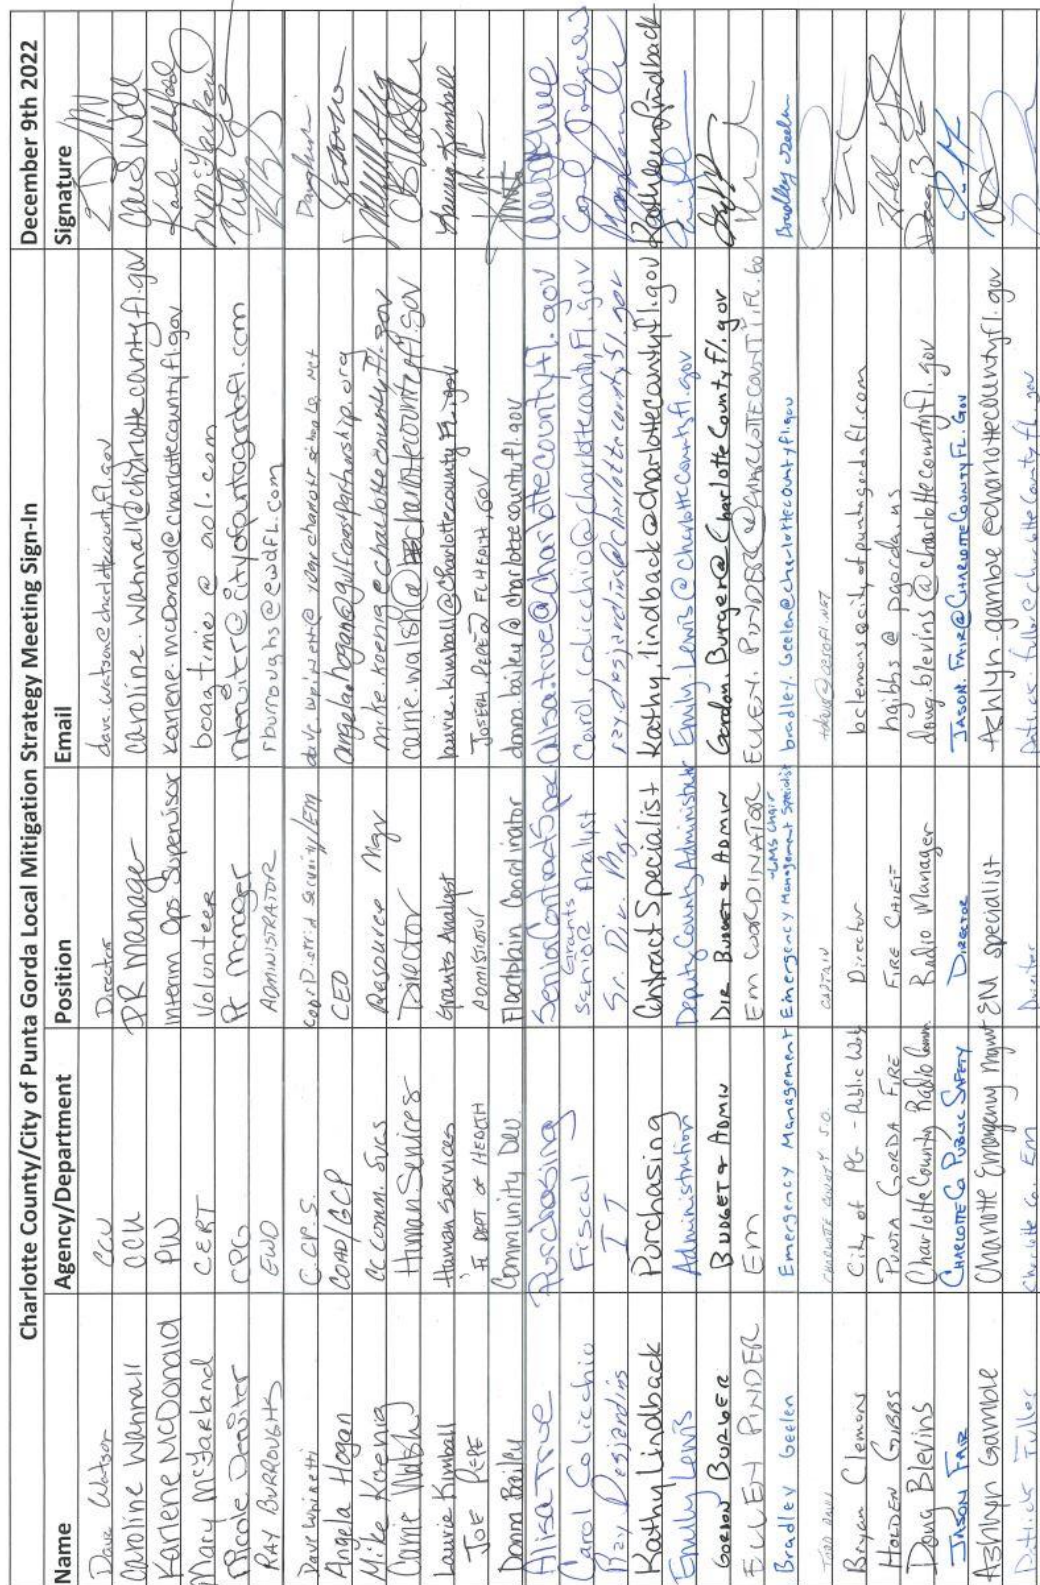 Charlotte County/City of Punta Gorda Local Mitigation Strategy Meeting Sign-In December 9th 2022
Name Agency/Department Position Email Signature
Dave Watson CCU Director dave.watson@charlottecountyfl.gov
Caroline Wannall CCU PR Manager caroline.wannall@charlottecountyfl.gov
Karlene McDonald PW Interim Ops Supervisor karlene.mcDonald@charlottecountyfl.gov
Mary McFarland CERT Volunteer boogtime@aol.com
Nicole CPG
RAY BURROUGHS EWD ADMINISTRATOR rburroughs@ewdfl.com
Dave C.CP.S.
Angela Hogan COAD/GCP CEO angela.hogan@gulfcoastpartnership.org
Mike Koenig CC Comm. Svcs Resource Mgr mike.koenig@charlottecountyfl.gov
Carrie Walsh Human Services Director carrie.walsh@charlottecountyfl.gov
Laurie Kimball Human Services Grants Analyst laurie.kimball@charlottecountyfl.gov
JOE PEPE FL DEPT of HEALTH JOSEPH.PEPE@FLHEALTH.GOV
Donna Bailey Community Dev Floodplain Coordinator donna.bailey@charlottecountyfl.gov
Alisa True Purchasing Senior Contract Spec alisa.true@charlottecountyfl.gov
Carol Colicchio Fiscal Senior Grants Analyst Carol.colicchio@charlottecountyfl.gov
Ray Desjardins IT Sr. Div. Mgr. ray.desjardins@charlottecountyfl.gov
Kathy Lindback Purchasing Contract Specialist Kathy.lindback@charlottecountyfl.gov Kathleen Lindback
Emily Lewis Administration Deputy County Administrator Emily.Lewis@charlottecountyfl.gov
GORDON BURGER BUDGET & ADMIN DIR BUDGET & ADMIN Gordon.Burger@CharlotteCountyFl.gov
EM EM COORDINATOR
Bradley Geelen Emergency Management Emergency Management Specialist LMS Chair bradley.Geelen@charlottecountyfl.gov Bradley Geelen
CHARLOTTE COUNTY S.O. CAPTAIN
Bryan Clemons City of PG - Public Wks Director bclemons@cityofpuntagordafl.com
HOLDEN GIBBS PUNTA GORDA FIRE FIRE CHIEF hgibbs@pgorda.us
Doug Blevins Charlotte County Radio Comm. Radio Manager doug.blevins@charlottecountyfl.gov
JASON FAIR CHARLOTTE CO PUBLIC SAFETY DIRECTOR JASON.FAIR@CHARLOTTECOUNTYFL.GOV
Ashlyn Gamble Charlotte Emergency Mgmt EM specialist Ashlyn.gamble@charlottecountyfl.gov
Patrick Fuller Charlotte Co. EM Director Patrick.fuller@charlottecountyfl.gov